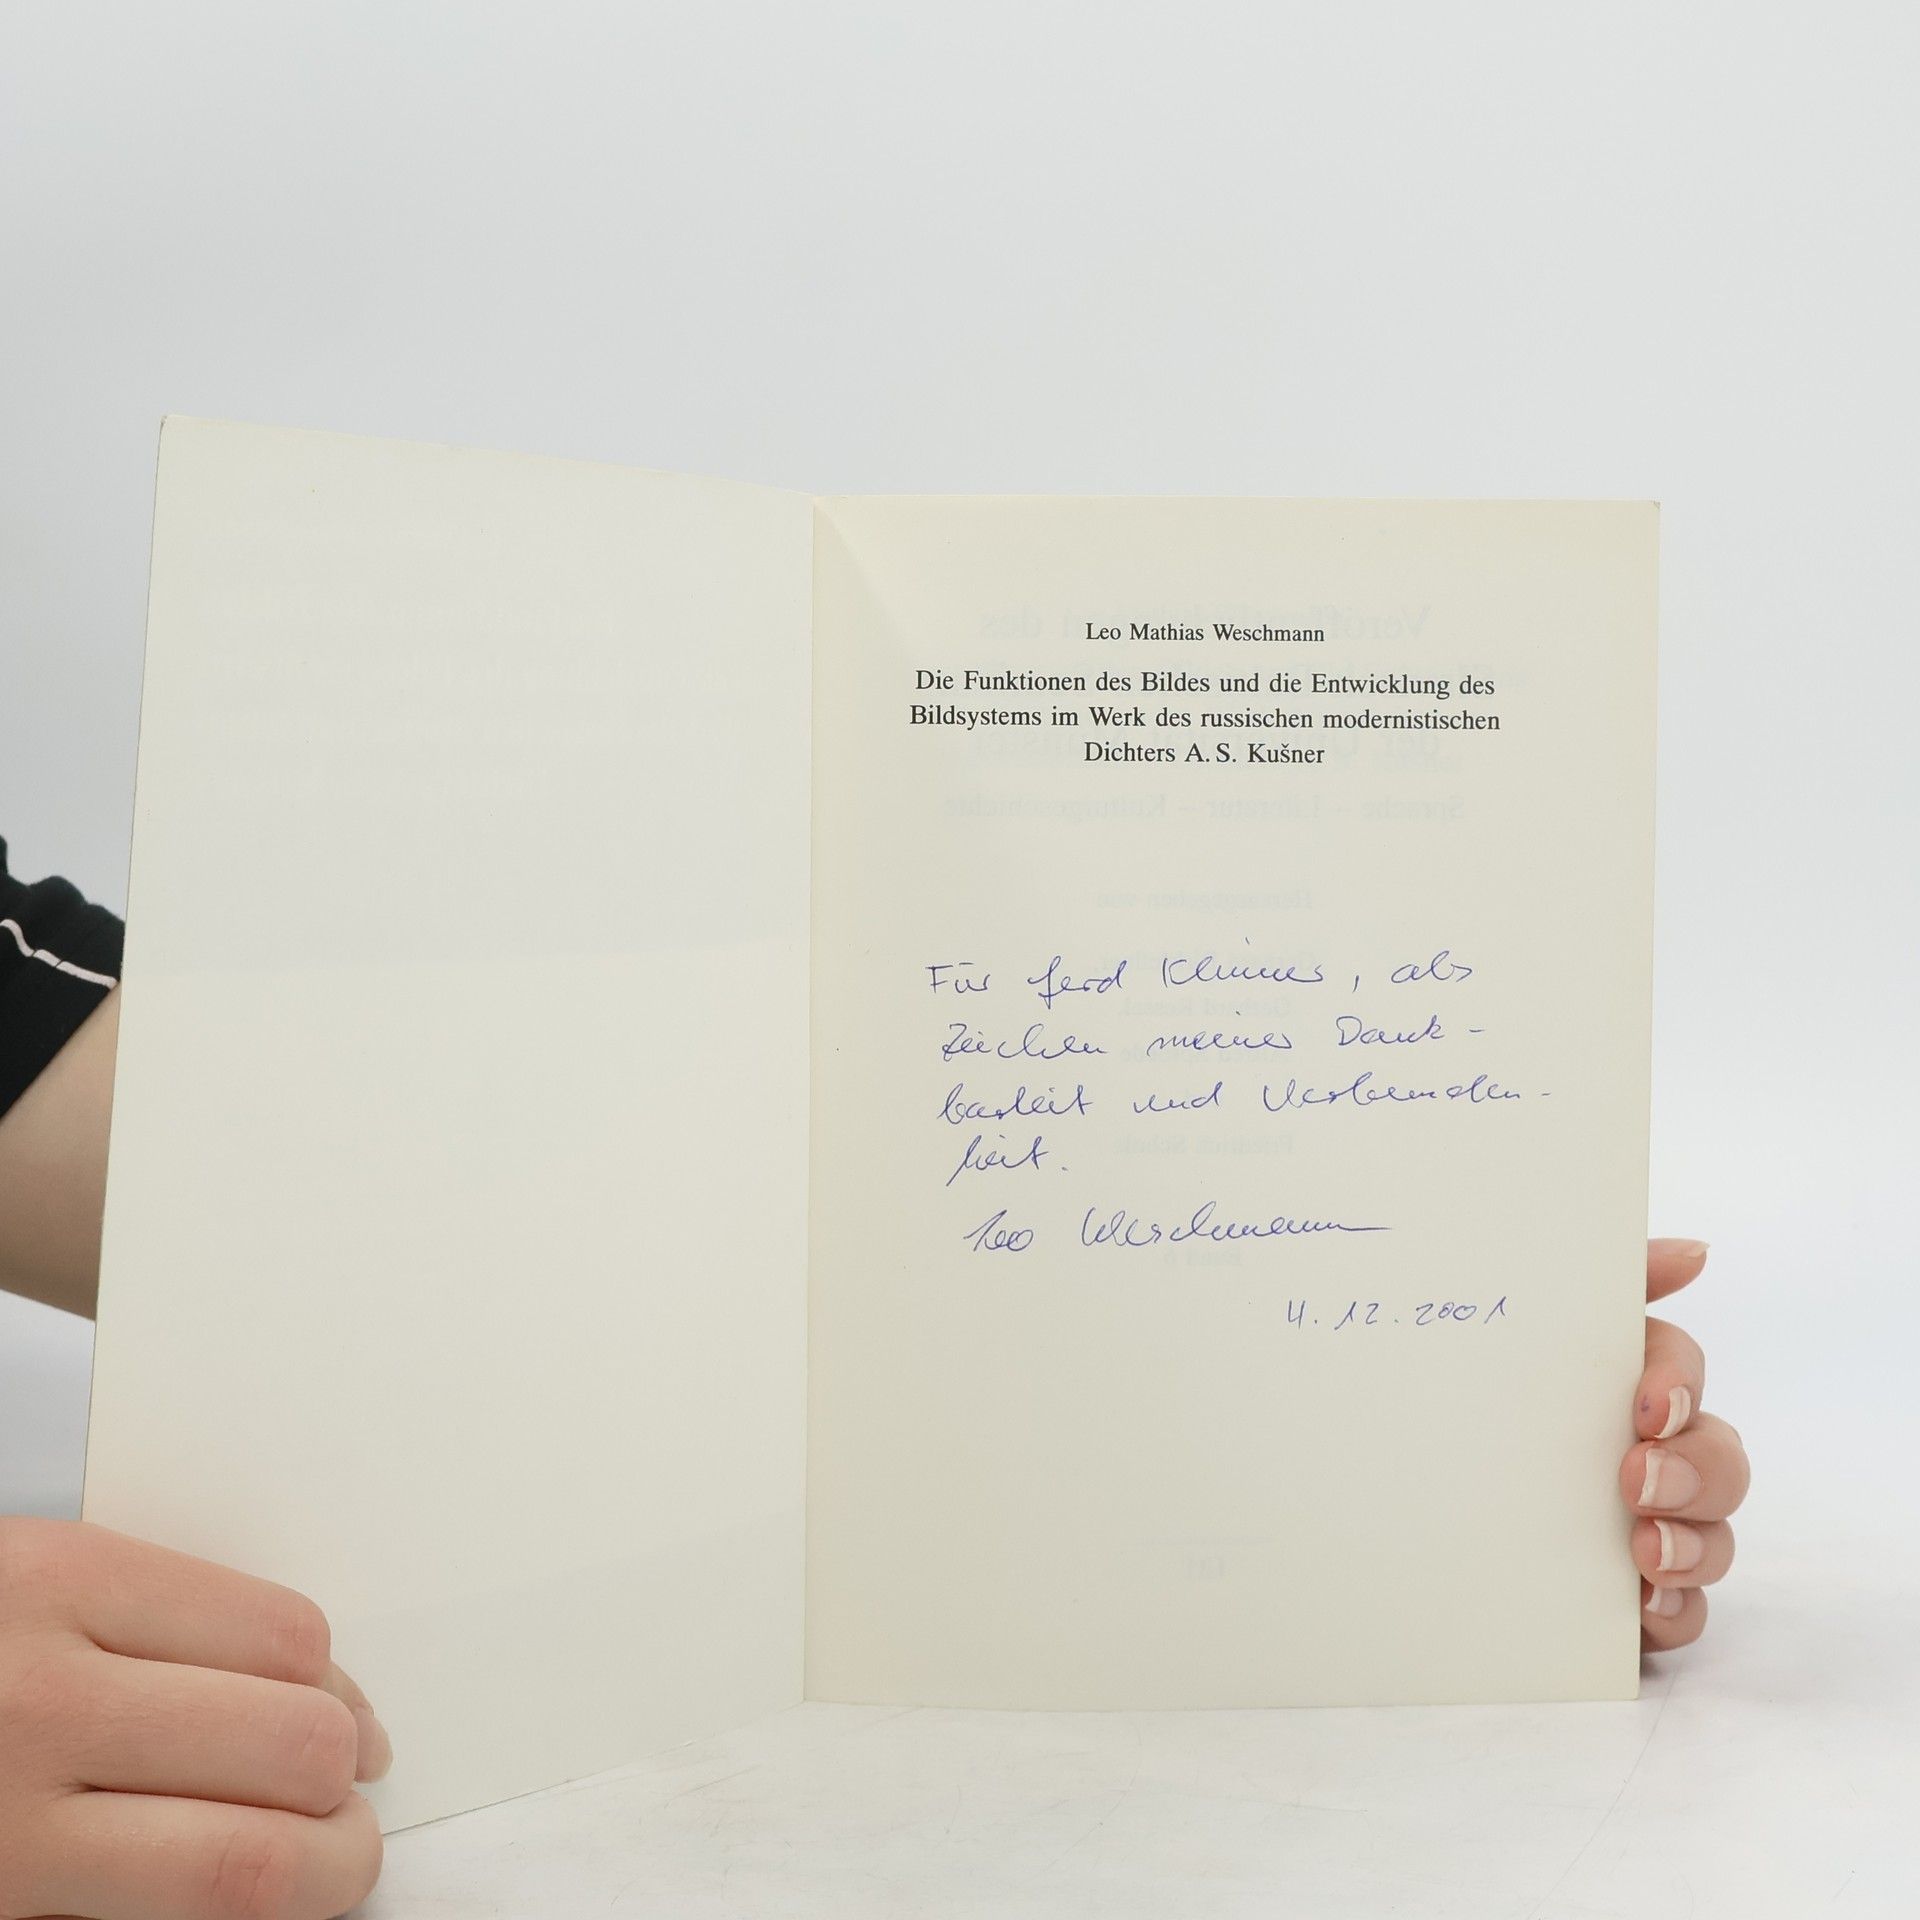 Leo Mathias Weschmann
Die Funktionen des Bildes und die Entwicklung des
Bildsystems im Werk des russischen modernistischen
Dichters A. S. Kušner
Für Gerd Klimes, als
Zeichen meiner Dank-
barkeit und Verbunden-
heit.
Leo Weschmann
4. 12. 2001